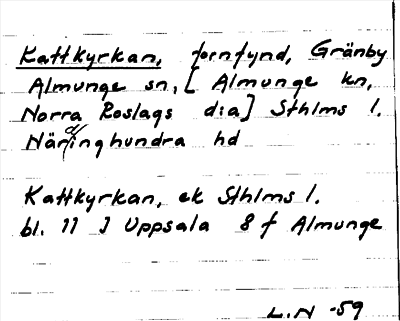 Kattkyrkan, fornfynd, Gränby
Almunge sn, [Almunge kn,
Norra Roslags d:a] Sthlms l.
Närdinghundra hd
Kattkyrkan, ek Sthlms l.
bl. 11 J Uppsala 8 f Almunge
L.N -59